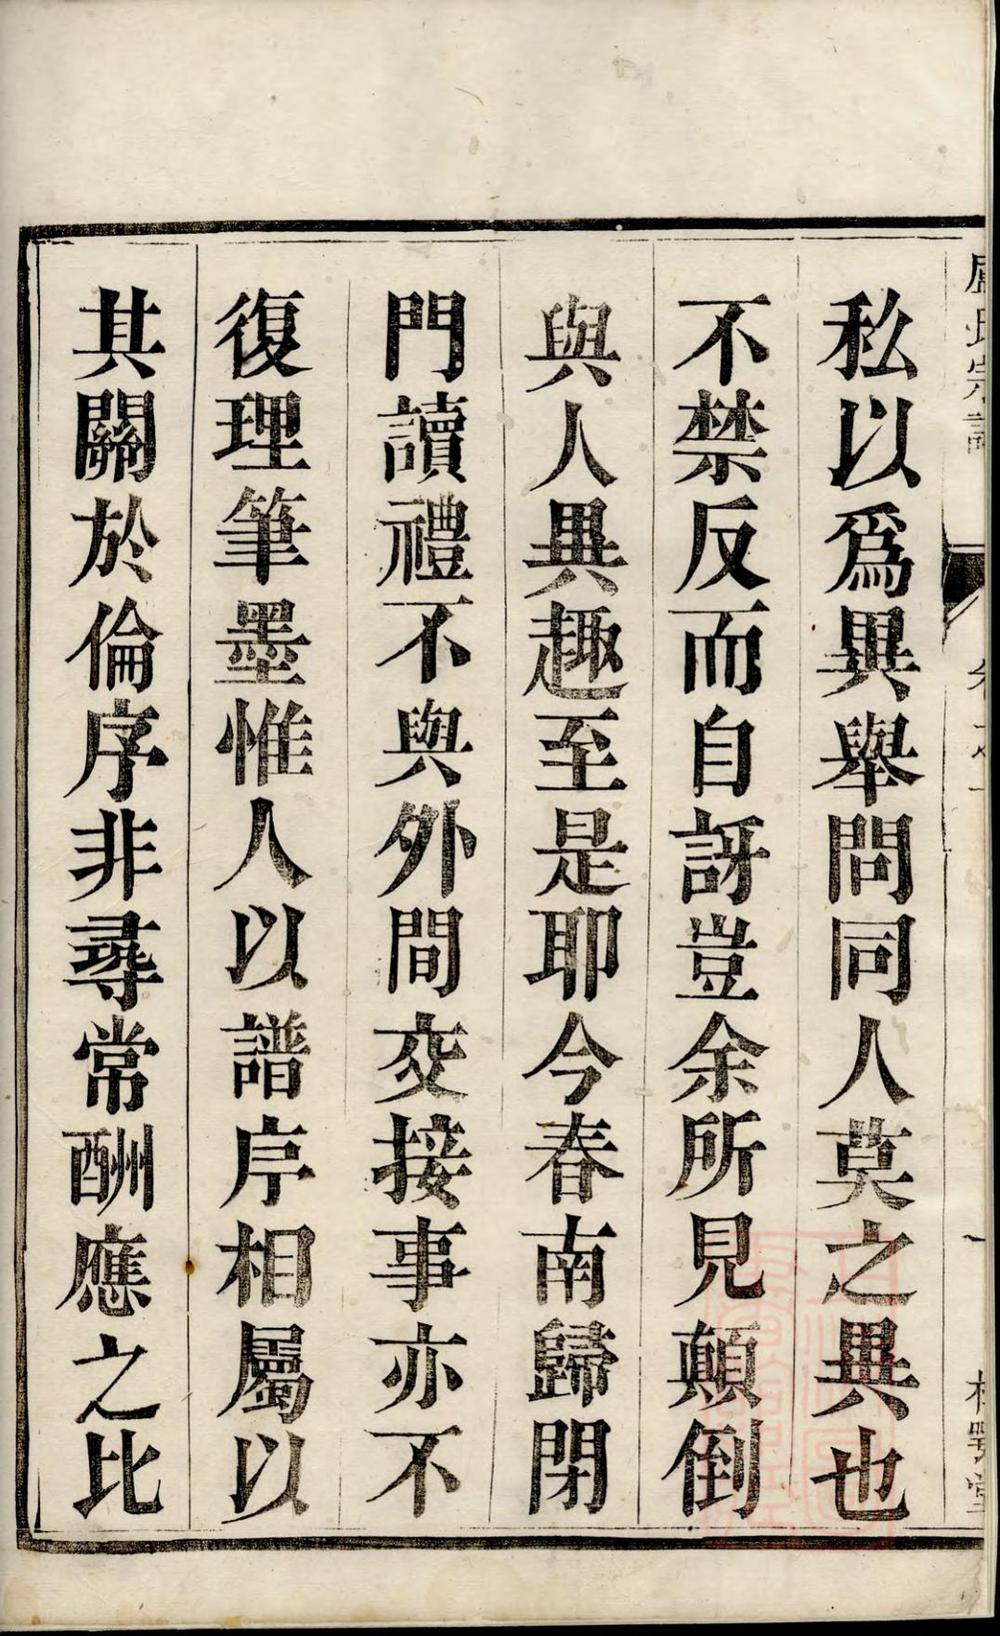 私以爲異舉問同人莫之異也
不禁反而自訝豈余所見顛倒
與人異趣至是耶今春南歸閉
門讀禮不與外間交接事亦不
復理筆墨惟人以譜序相屬以
其關於倫序非尋常酬應之比